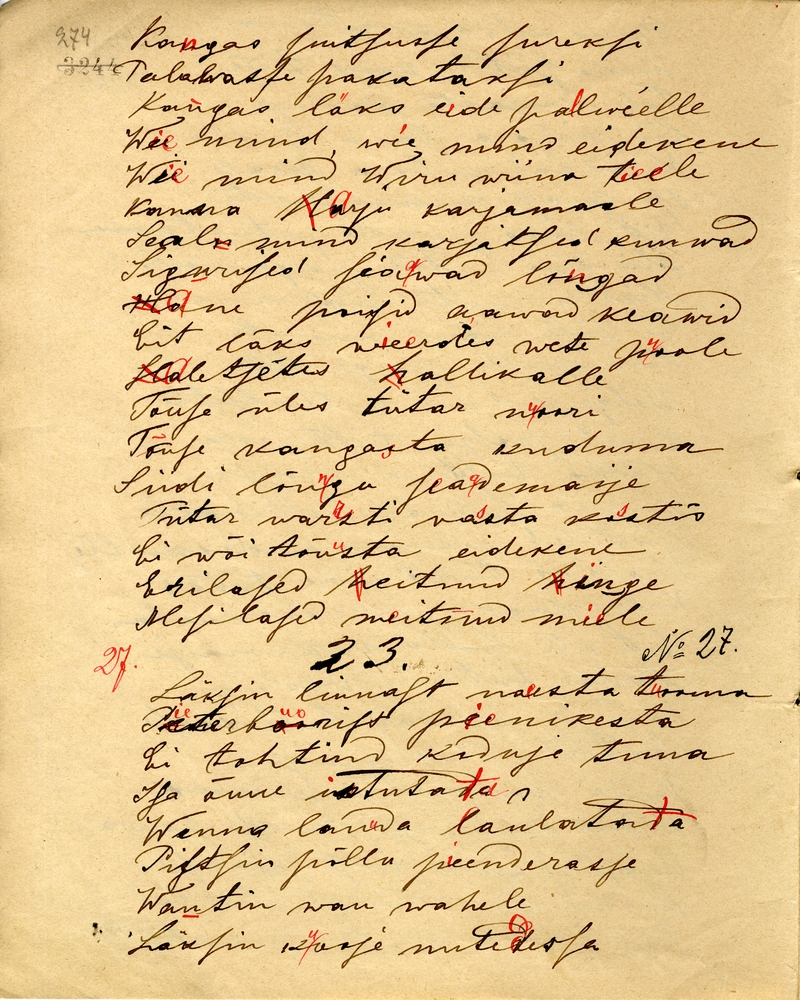 274
3244
Kangas puitsusse sureksi
Talawasse pakataksi
Kangas läks eide palweelle
Wie mind, wie mind eidekene
Wie mind Wiru wiina teele
Kanna Harju karjamaale
Sealn mind karjatsed kuuwad
Sigurised seawad lõngad
poisid aawad keawid
Eit läks wieerdes wete poole
Haletsetes hallikalle
Tõuse üles tütar noori
Tõuse kangasta kuduma
Siidi lõnga seademaije
Tütar warsti wasta kostis
Ei wõi tõusta eidekene
Erilased heitnud hinge
Mesilased meitnud miele
27. 23. No 27.
Läksin linnast naesta tooma
Peterböörist peenikesta
Ei tohtind koduje tuua
Isa õuue istutada
Wenna lauda laulatada
Pistsin põllu peenderasse
Wautin wau wahele
Läksin kooje nutedessa